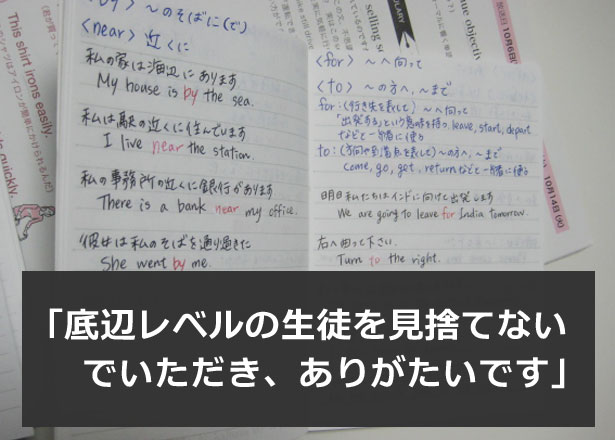 〜のそばに(で)
<near> 近くに
私の家は海辺にあります
My house is by the sea.
私は駅の近くに住んでいます
I live near the station.
私の事務所の近くに銀行があります
There is a bank near my office.
彼女は私のそばを通り過ぎた
She went by me.
<for> 〜へ向って
<to> 〜の方へ、〜まで
for:(行き先を表して) 〜へ向って
「出発する」という意味を持つ、leave, start, depart
などと一緒に使う
to:(方向や到達点を表して)〜の方へ、〜まで
come, go, get, returnなどと一緒に使う
明日私たちはインドに向けて出発します
We are going to leave for India tomorrow.
右へ曲って下さい.
Turn to the right.
This shirt irons easily
quickly.
selling
ULARY
ue objective
10月6日
10月14日(火)
「底辺レベルの生徒を見捨てない
でいただき、ありがたいです」